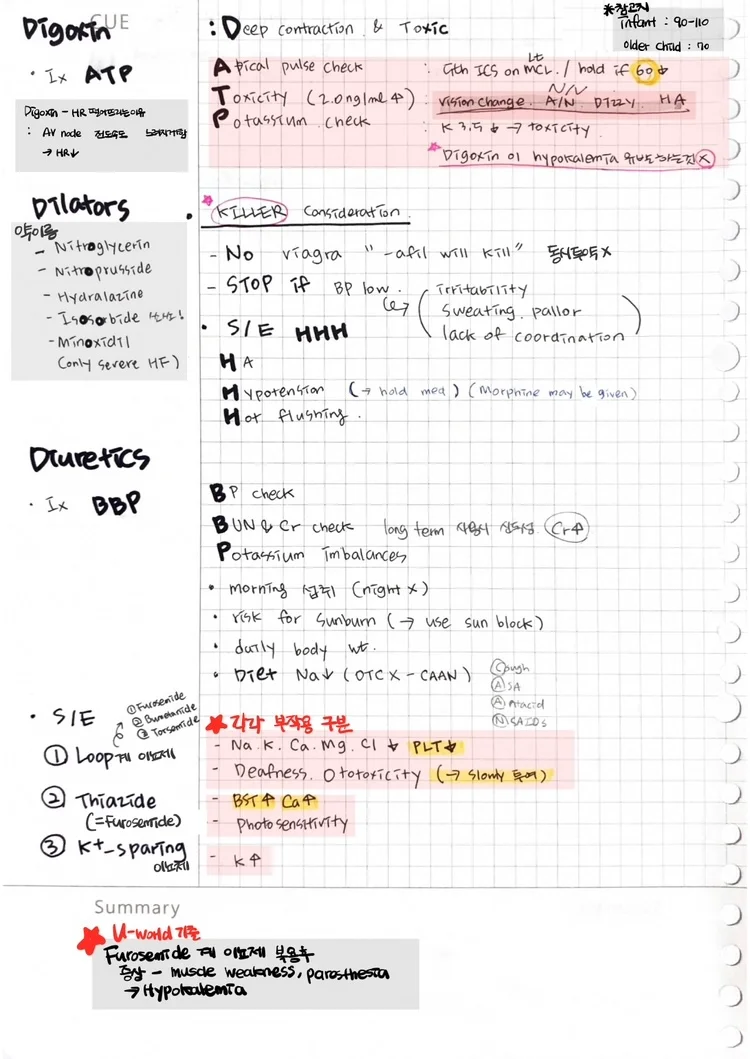 ★참고치
infant : 90-110
older child : 70
CUE
Digoxin
: Deep contraction & Toxic
• Ix ATP
Apical pulse check : 5th ICS on Lt MCL / hold if 60↓
Toxicity (2.0ng/ml↑) : vision change. N/V A/N. Dizzy. HA
Potassium check : K 3.5↓ → toxicity.
★ Digoxin이 hypokalemia 유발하는것 ⓧ
Digoxin - HR 떨어뜨리는이유
: AV node 전도속도 느려지게함
→ HR↓
Dilators
• ★ KILLER Consideration.
약이름
- Nitroglycerin
- Nitroprusside
- Hydralazine
- Isosorbide
- Minoxidil
(only severe HF)
- No viagra " -afil will kill" 동시투여 X
- STOP if BP low. ↪ ( irritability
sweating. pallor
lack of coordination )
• S/E HHH
HA
Hypotension (→ hold med) (Morphine may be given)
Hot flushing.
Diuretics
• Ix BBP
BP check
BUN & Cr check long term 사용시 신독성 Cr↑
Potassium imbalances
• morning 섭취 (night X)
• risk for sunburn (→ use sun block)
• daily body wt.
• Diet Na↓ (OTC X - CAAN)
Cough
ASA
Antacid
NSAIDs
• S/E
① Furosemide
② Bumetanide
③ Torsemide
★각각 부작용 구분
① Loop계 이뇨제
- Na. K. Ca. Mg. Cl ↓ PLT↓
- Deafness. Ototoxicity (→ Slowly 투여)
② Thiazide
(=Furosemide)
- BST↑ Ca↑
- Photosensitivity
③ K+-sparing
이뇨제
- K↑
Summary
★ U-world 기출
Furosemide 계 이뇨제 복용후
증상 - muscle weakness, paresthesia
→ Hypokalemia